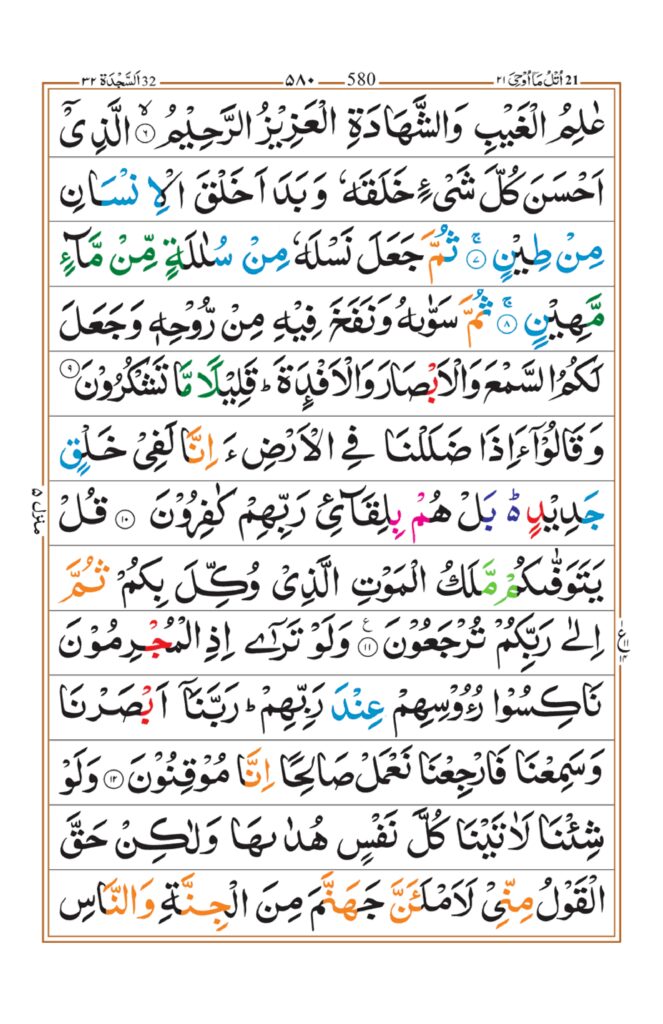 21 اُتْلُ مَآ اُوْحِیَ ۲۱ 580 ۵۸۰ 32 اَلسَّجْدَة ۳۲
عٰلِمُ الْغَیْبِ وَالشَّهَادَةِ الْعَزِیْزُ الرَّحِیْمُ ۙ‏﴿۶﴾ الَّذِیْۤ
اَحْسَنَ كُلَّ شَیْءٍ خَلَقَهٗ وَبَدَاَ خَلْقَ الْاِنْسَانِ
مِنْ طِیْنٍ ۚ‏﴿۷﴾ ثُمَّ جَعَلَ نَسْلَهٗ مِنْ سُلٰلَةٍ مِّنْ مَّآءٍ
مَّهِیْنٍ ۚ‏﴿۸﴾ ثُمَّ سَوّٰىهُ وَنَفَخَ فِیْهِ مِنْ رُّوْحِهٖ وَجَعَلَ
لَكُمُ السَّمْعَ وَالْاَبْصَارَ وَالْاَفْئِدَةَ ؕ قَلِیْلًا مَّا تَشْكُرُوْنَ ﴿۹﴾
وَقَالُوْۤا ءَاِذَا ضَلَلْنَا فِی الْاَرْضِ ءَاِنَّا لَفِیْ خَلْقٍ
جَدِیْدٍ ؕ۬ بَلْ هُمْ بِلِقَآئِ رَبِّهِمْ كٰفِرُوْنَ ﴿۱۰﴾ قُلْ
یَتَوَفّٰىكُمْ مَّلَكُ الْمَوْتِ الَّذِیْ وُكِّلَ بِكُمْ ثُمَّ
اِلٰی رَبِّكُمْ تُرْجَعُوْنَ ﴿۱۱﴾ ع وَلَوْ تَرٰۤی اِذِ الْمُجْرِمُوْنَ
نَاكِسُوْا رُءُوْسِهِمْ عِنْدَ رَبِّهِمْ ؕ رَبَّنَاۤ اَبْصَرْنَا
وَسَمِعْنَا فَارْجِعْنَا نَعْمَلْ صَالِحًا اِنَّا مُوْقِنُوْنَ ﴿۱۲﴾ وَلَوْ
شِئْنَا لَاٰتَیْنَا كُلَّ نَفْسٍ هُدٰىهَا وَلٰكِنْ حَقَّ
الْقَوْلُ مِنِّیْ لَاَمْلَئَنَّ جَهَنَّمَ مِنَ الْجِنَّةِ وَالنَّاسِ
منزل ۵
ع ۱۱ ۱۴